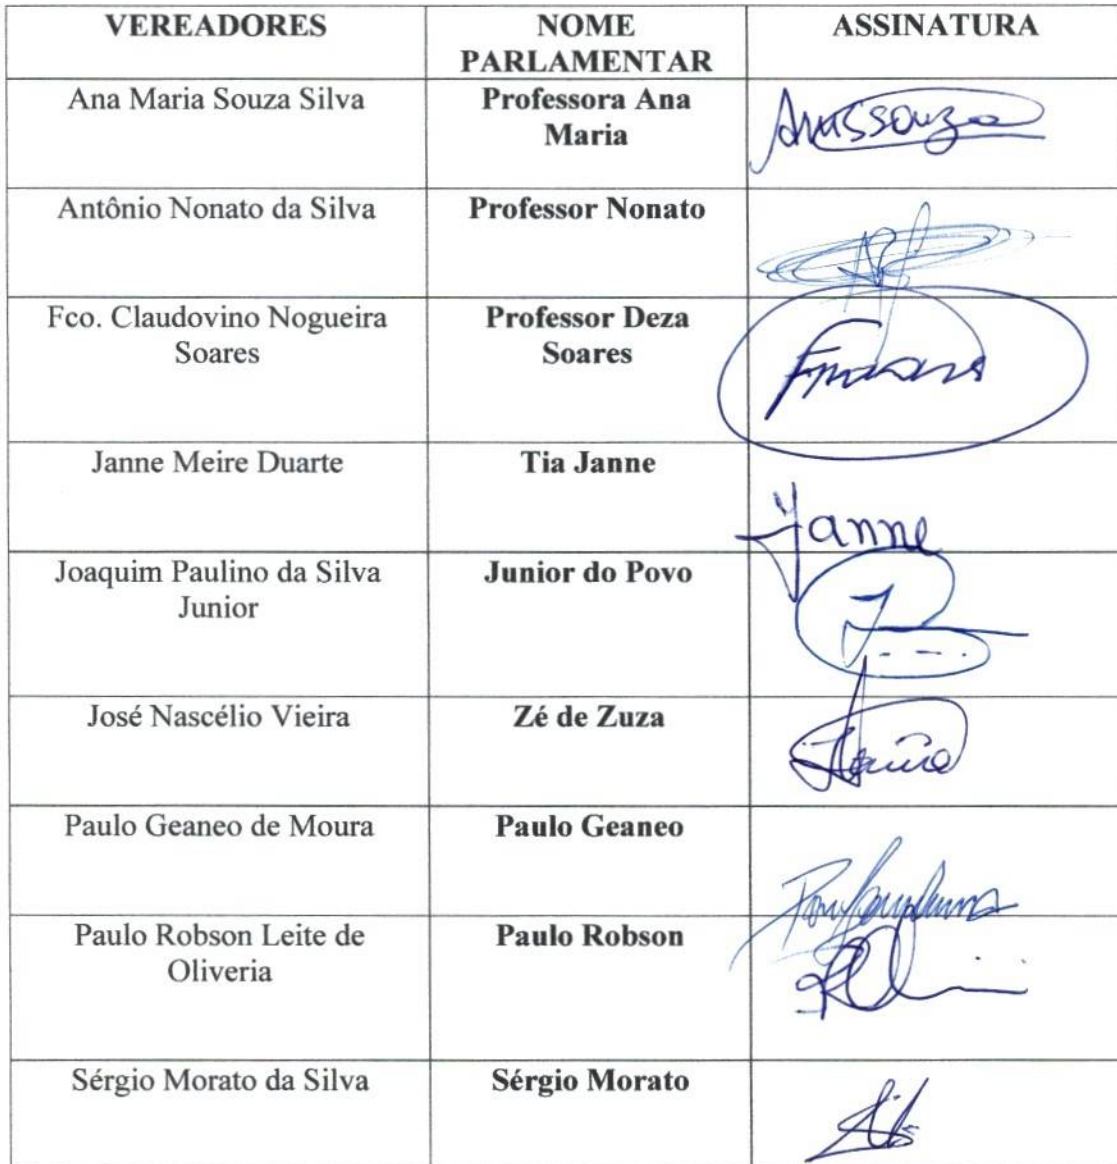 VEREADORES NOME PARLAMENTAR ASSINATURA
Ana Maria Souza Silva Professora Ana
Maria
Antônio Nonato da Silva Professor Nonato
Fco. Claudovino Nogueira Professor Deza
Soares Soares
Janne Meire Duarte Tia Janne
Janne
Joaquim Paulino da Silva Junior do Povo
Junior
José Nascélio Vieira Zé de Zuza
Paulo Geaneo de Moura Paulo Geaneo
Paulo Robson Leite de Paulo Robson
Oliveria
Sérgio Morato da Silva Sérgio Morato